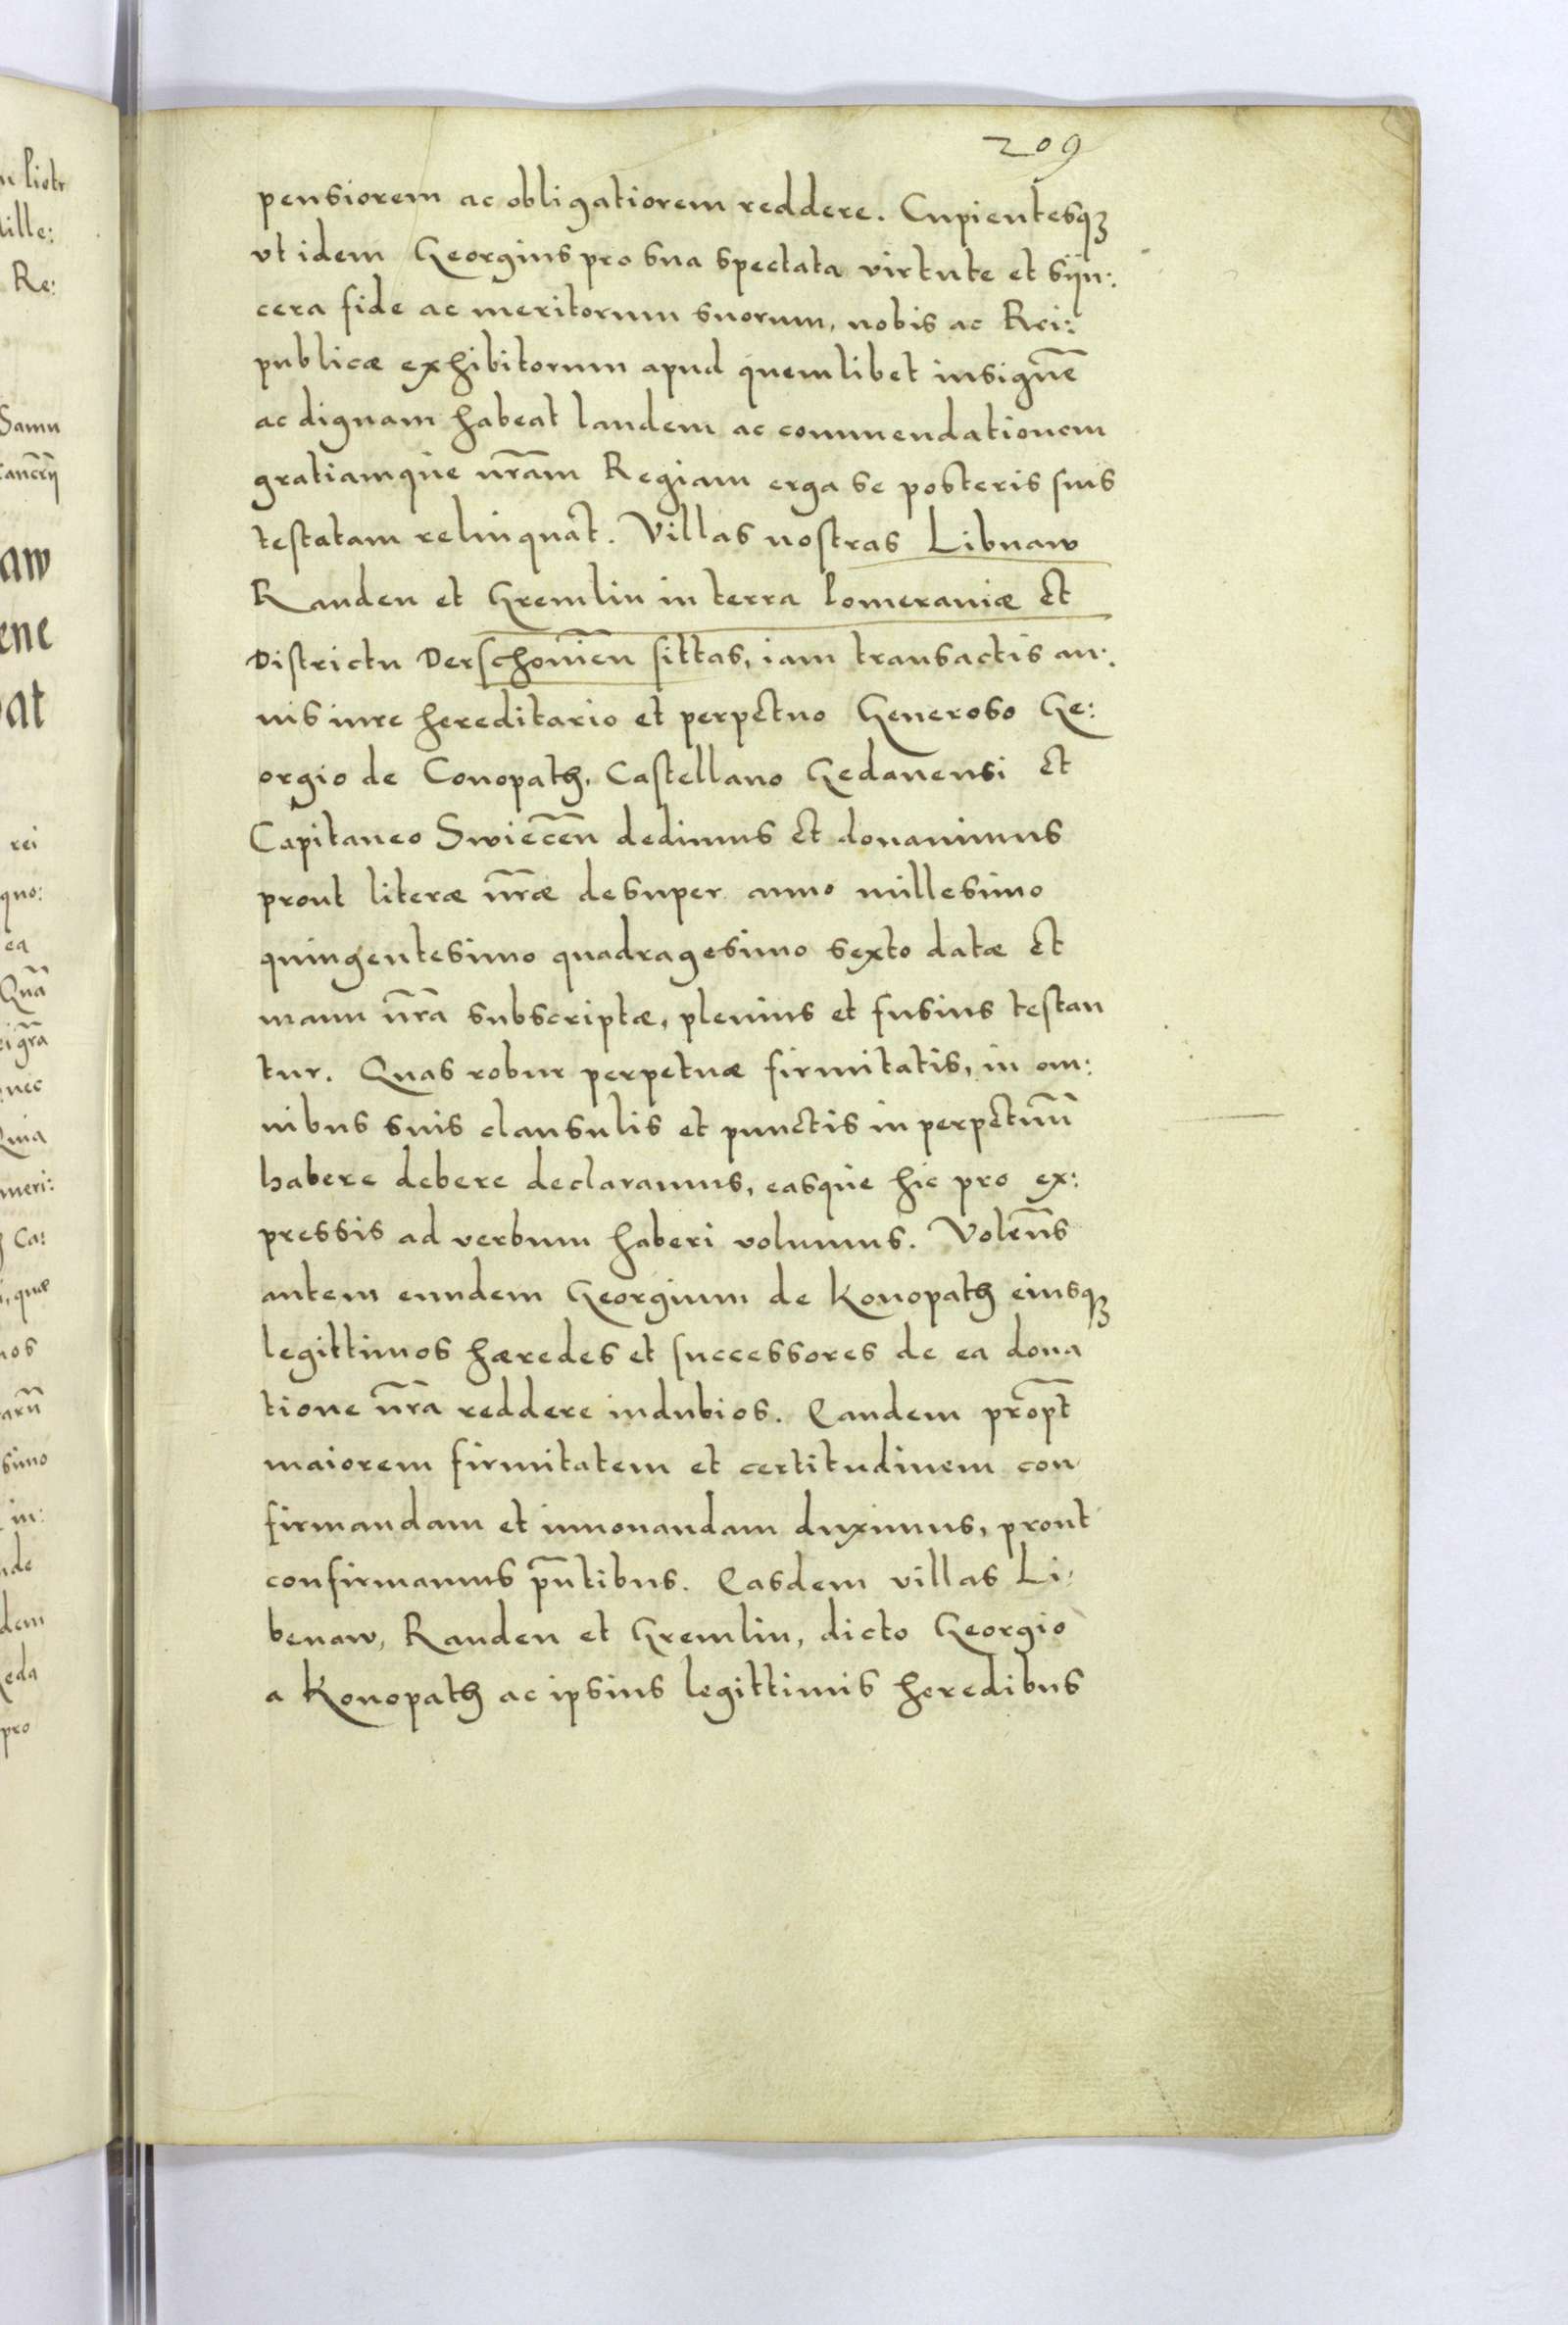 209
pensiorem ac obligatiorem reddere. Cupientesqꝫ
vt idem Georgius pro sua spectata virtute et sijn:
cera fide ac meritorum suorum, nobis ac Rei:
publicæ exhibitorum apud quemlibet insignē
ac dignam habeat laudem ac commendationem
gratiamque nr̄am Regiam erga se posteris suis
testatam relinquat. Villas nostras Libnaw
Rauden et Gremlin in terra Pomeraniæ et
Districtu Derschouień sittas, iam transactis an:
nis iure hereditario et perpetuo Generoso Ge:
orgio de Conopath, Castellano Gedanensi et
Capitaneo Swieceń dedimus et donauimus
prout literæ nr̄æ desuper anno millesimo
quingentesimo quadragesimo sexto datæ et
manu nr̄a subscriptæ, plenius et fusius testan
tur. Quas robur perpetuæ firmitatis, in om:
nibus suis clausulis et punctis in perpetuū
habere debere declaramus, easque hic pro ex:
pressis ad verbum haberi volumus. Volen̄s
autem eundem Georgium de Konopath eiusqꝫ
legittimos hæredes et successores de ea dona
tione nr̄a reddere indubios. Eandem prop̄t
maiorem firmitatem et certitudinem con
firmandam et innouandam duximus, prout
confirmamus pn̄tibus. Easdem villas Li:
benaw, Rauden et Gremlin, dicto Georgio
a Konopath ac ipsius legittimis heredibus